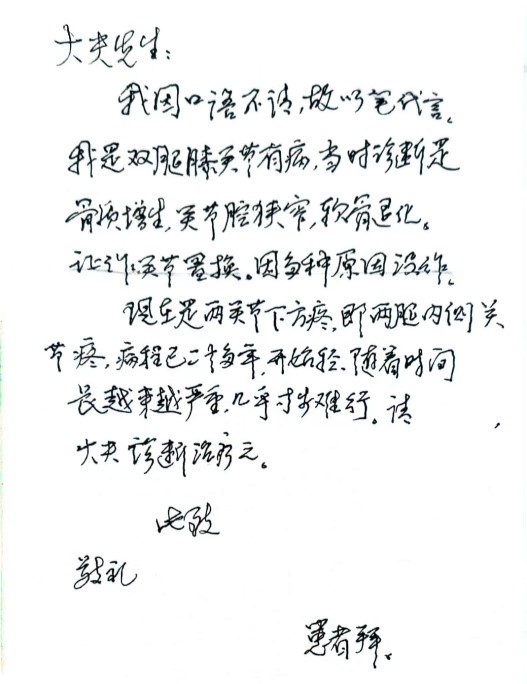 大夫先生：
我因口语不清，故以笔代言。
我是双腿膝关节有病，当时诊断是
骨质增生，关节腔狭窄，软骨退化。
让作关节置换。因多种原因没作。
现在是两关节下方疼，即两腿内侧关
节疼，病程已二十多年，开始轻、随着时间
长越来越严重，几乎寸步难行。请
大夫诊断治疗之。
此致
敬礼
患者拜。